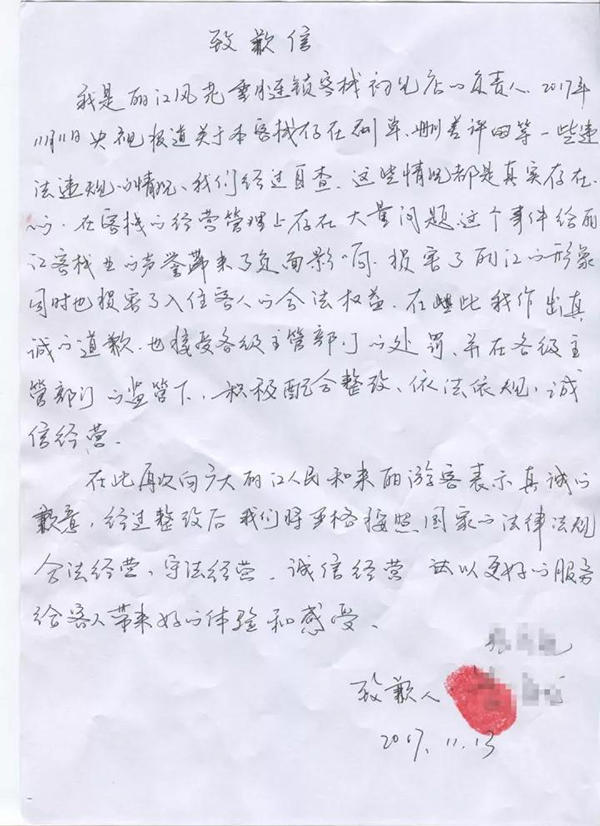 致歉信
我是丽江风花雪月连锁客栈初见店的负责人.2017年
11月11日央视报道关于本客栈存在刷单、删差评等一些违
法违规的情况、我们经过自查.这些情况都是真实存在
的.在客栈的经营管理上存在大量问题.这个事件给丽
江客栈业的声誉带来了负面影响.损害了丽江的形象
同时也损害了入住客人的合法权益.在此我作出真
诚的道歉.也接受各级主管部门的处罚、并在各级主
管部门的监管下、积极配合整改、依法依规、诚
信经营.
在此再次向广大丽江人民和来丽游客表示真诚的
歉意,经过整改后我们将严格按照国家的法律法规
合法经营、守法经营.诚信经营 以更好的服务
给客人带来好的体验和感受、
致歉人
2017.11.13